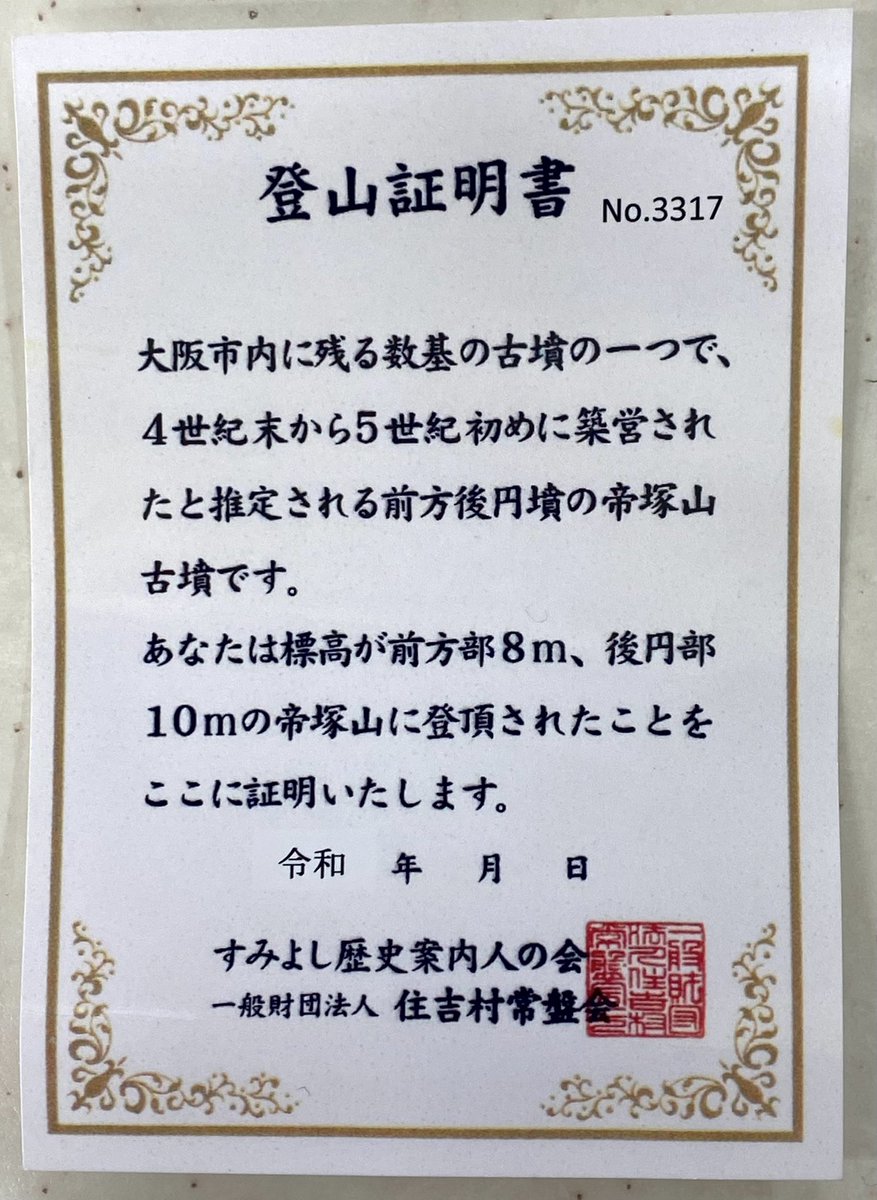 登山証明書 No.3317
大阪市内に残る数基の古墳の一つで、
4世紀末から5世紀初めに築営され
たと推定される前方後円墳の帝塚山
古墳です。
あなたは標高が前方部8m、後円部
10mの帝塚山に登頂されたことを
ここに証明いたします。
令和 年 月 日
すみよし歴史案内人の会
一般財団法人 住吉村常盤会